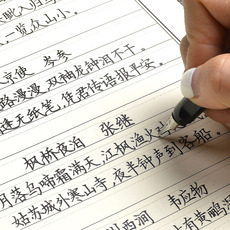 眦入归鸟
，一览众山小。
京使　岑参
路漫漫，双袖龙钟泪不干。
逢无纸笔，凭君传语报平安。
枫桥夜泊　张继
月落乌啼霜满天，江枫渔火对
姑苏城外寒山寺，夜半钟声到客船。
州西涧　韦应物
有黄鹂深